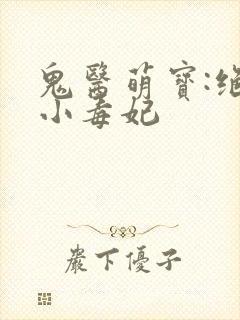 鬼醫萌寶:絕
小毒妃
巖下優子